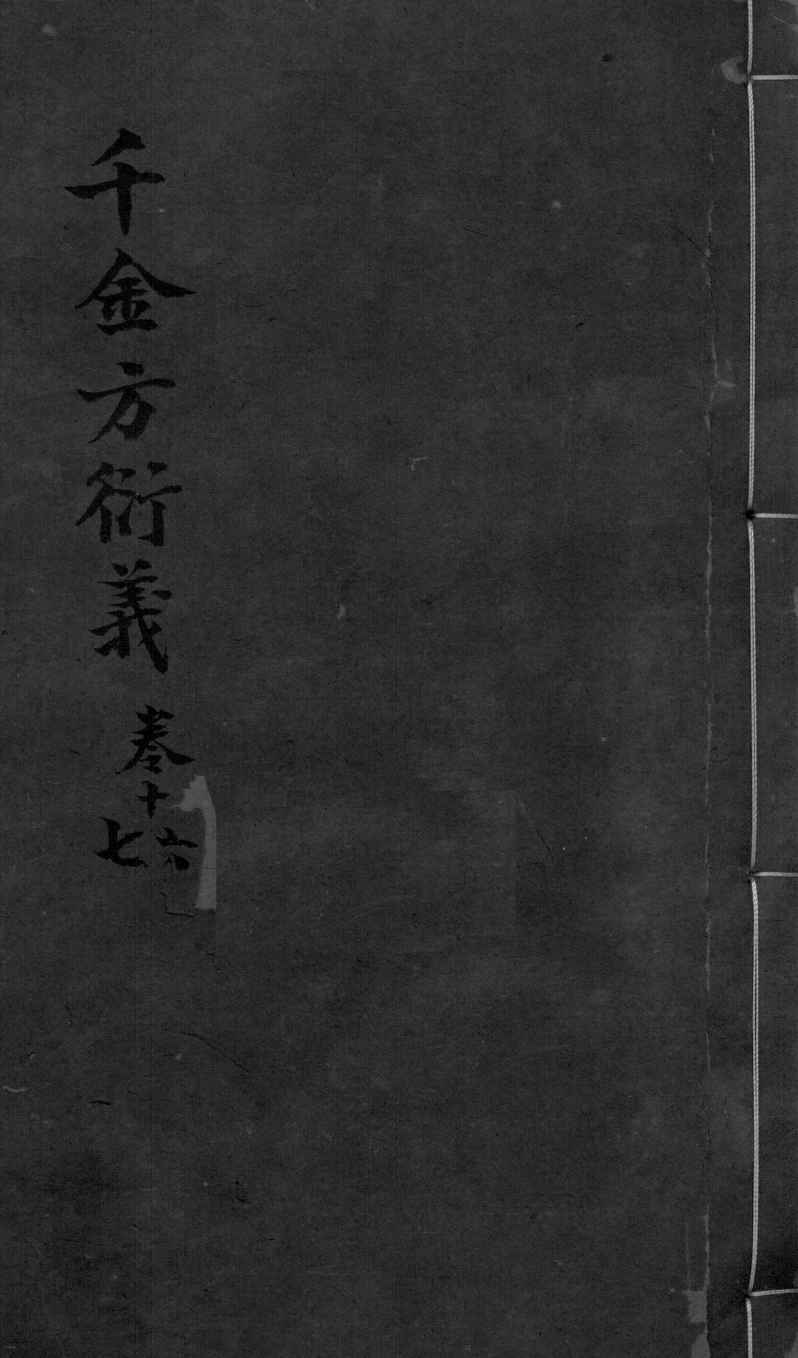 千金方衍義 卷十六
七